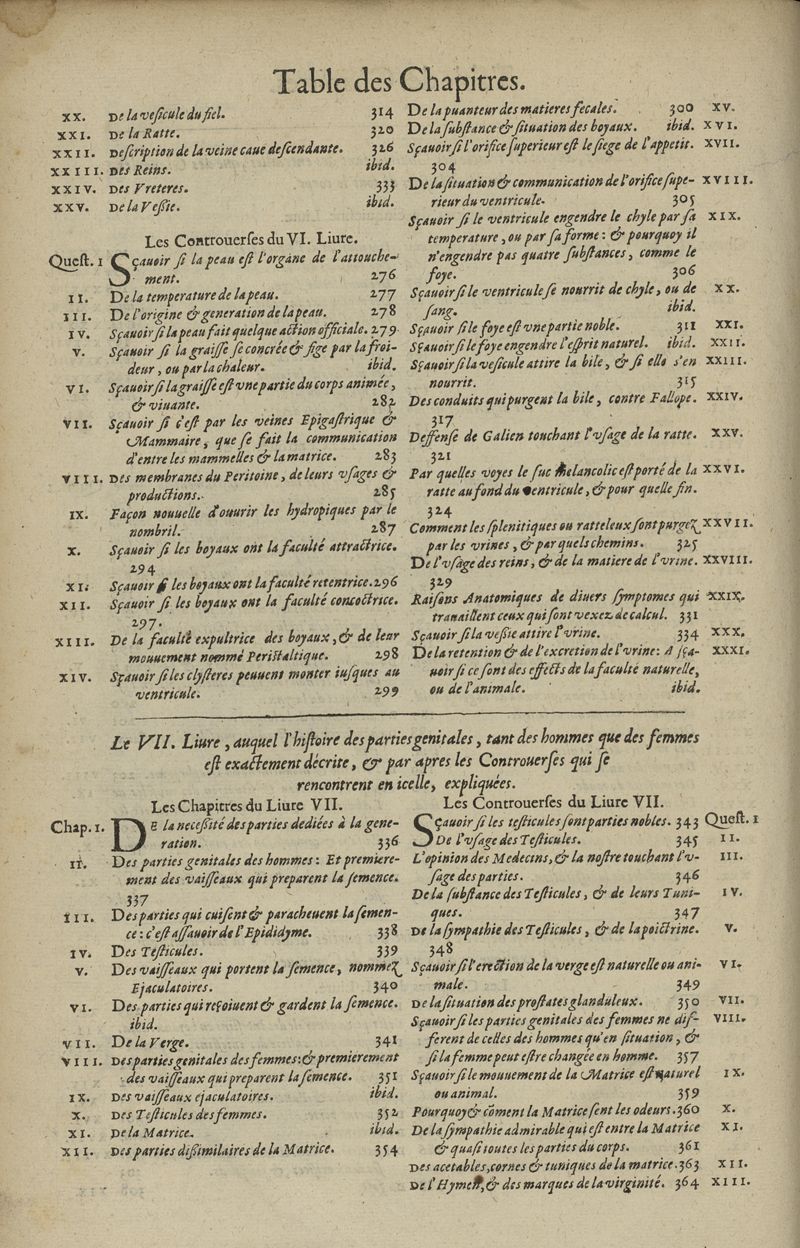 Table des Chapitres.
XX. De la veſicule du fiel. 314
XXI. De la Ratte. 320
XXII. Deſcription de la veine caue deſcendante. 326
XXIII. Des Reins. ibid.
XXIV. Des Vreteres. 333
XXV. De la Veſsie. ibid.
Les Controuerſes du VI. Liure.
Queſt. 1 Sçauoir ſi la peau eſt l'organe de l'attouche-
ment. 276
II. De la temperature de la peau. 277
III. De l'origine & generation de la peau. 278
IV. Sçauoir ſi la peau fait quelque action officiale. 279
V. Sçauoir ſi la graiſſe ſe concrée & fige par la froi-
deur, ou par la chaleur. ibid.
VI. Sçauoir ſi la graiſſe eſt vne partie du corps animée,
& viuante. 282
VII. Sçauoir ſi c'eſt par les veines Epigaſtrique &
Mammaire, que ſe fait la communication
d'entre les mammelles & la matrice. 283
VIII. Des membranes du Peritoine, de leurs vſages &
productions. 285
IX. Façon nouuelle d'ouurir les hydropiques par le
nombril. 287
X. Sçauoir ſi les boyaux ont la faculté attractrice.
294
XI. Sçauoir ſi les boyaux ont la faculté retentrice. 296
XII. Sçauoir ſi les boyaux ont la faculté concoctrice.
297.
XIII. De la faculté expultrice des boyaux, & de leur
mouuement nommé Periſtaltique. 298
XIV. Sçauoir ſi les clyſteres peuuent monter iuſques au
ventricule. 299
De la puanteur des matieres fecales. 300 XV.
De la ſubſtance & ſituation des boyaux. ibid. XVI.
Sçauoir ſi l'orifice ſuperieur eſt le ſiege de l'appetit. XVII.
304
De la ſituation & communication de l'orifice ſupe- XVIII.
rieur du ventricule. 305
Sçauoir ſi le ventricule engendre le chyle par ſa XIX.
temperature, ou par ſa forme: & pourquoy il
n'engendre pas quatre ſubſtances, comme le
foye. 306
Sçauoir ſi le ventricule ſe nourrit de chyle, ou de XX.
ſang. ibid.
Sçauoir ſi le foye eſt vne partie noble. 311 XXI.
Sçauoir ſi le foye engendre l'eſprit naturel. ibid. XXII.
Sçauoir ſi la veſicule attire la bile, & ſi elle s'en XXIII.
nourrit. 315
Des conduits qui purgent la bile, contre Fallope. XXIV.
317
Deffenſe de Galien touchant l'vſage de la ratte. XXV.
321
Par quelles voyes le ſuc Melancolic eſt porté de la XXVI.
ratte au fond du ventricule, & pour quelle fin.
324
Comment les ſplenitiques ou ratteleux ſont purgez XXVII.
par les vrines, & par quels chemins. 325
De l'vſage des reins, & de la matiere de l'vrine. XXVIII.
329
Raiſons Anatomiques de diuers ſymptomes qui XXIX.
trauaillent ceux qui ſont vexez de calcul. 331
Sçauoir ſi la veſsie attire l'vrine. 334 XXX.
De la retention & de l'excretion de l'vrine: A ſça- XXXI.
uoir ſi ce ſont des effects de la faculté naturelle,
ou de l'animale. ibid.
Le VII. Liure, auquel l'hiſtoire des parties genitales, tant des hommes que des femmes
eſt exactement décrite, & par apres les Controuerſes qui ſe
rencontrent en icelle, expliquées.
Les Chapitres du Liure VII.
Chap. 1. DE la neceſsité des parties dediées à la gene-
ration. 336
II. Des parties genitales des hommes: Et premiere-
ment des vaiſſeaux qui preparent la ſemence.
337
III. Des parties qui cuiſent & paracheuent la ſemen-
ce: c'eſt aſſauoir de l'Epididyme. 338
IV. Des Teſticules. 339
V. Des vaiſſeaux qui portent la ſemence, nommez
Ejaculatoires. 340
VI. Des parties qui reçoiuent & gardent la ſemence.
ibid.
VII. De la Verge. 341
VIII. Des parties genitales des femmes: & premierement
des vaiſſeaux qui preparent la ſemence. 351
IX. Des vaiſſeaux ejaculatoires. ibid.
X. Des Teſticules des femmes. 352
XI. De la Matrice. ibid.
XII. Des parties diſsimilaires de la Matrice. 354
Les Controuerſes du Liure VII.
Sçauoir ſi les teſticules ſont parties nobles. 343 Queſt. 1
De l'vſage des Teſticules. 345 II.
L'opinion des Medecins, & la noſtre touchant l'v- III.
ſage des parties. 346
De la ſubſtance des Teſticules, & de leurs Tuni- IV.
ques. 347
De la ſympathie des Teſticules, & de la poictrine. V.
348
Sçauoir ſi l'erection de la verge eſt naturelle ou ani- VI.
male. 349
De la ſituation des proſtates glanduleux. 350 VII.
Sçauoir ſi les parties genitales des femmes ne dif- VIII.
ferent de celles des hommes qu'en ſituation, &
ſi la femme peut eſtre changée en homme. 357
Sçauoir ſi le mouuement de la Matrice eſt naturel IX.
ou animal. 359
Pourquoy & cōment la Matrice ſent les odeurs. 360 X.
De la ſympathie admirable qui eſt entre la Matrice XI.
& quaſi toutes les parties du corps. 361
Des acetables, cornes & tuniques de la matrice. 363 XII.
De l'Hymen, & des marques de la virginité. 364 XIII.